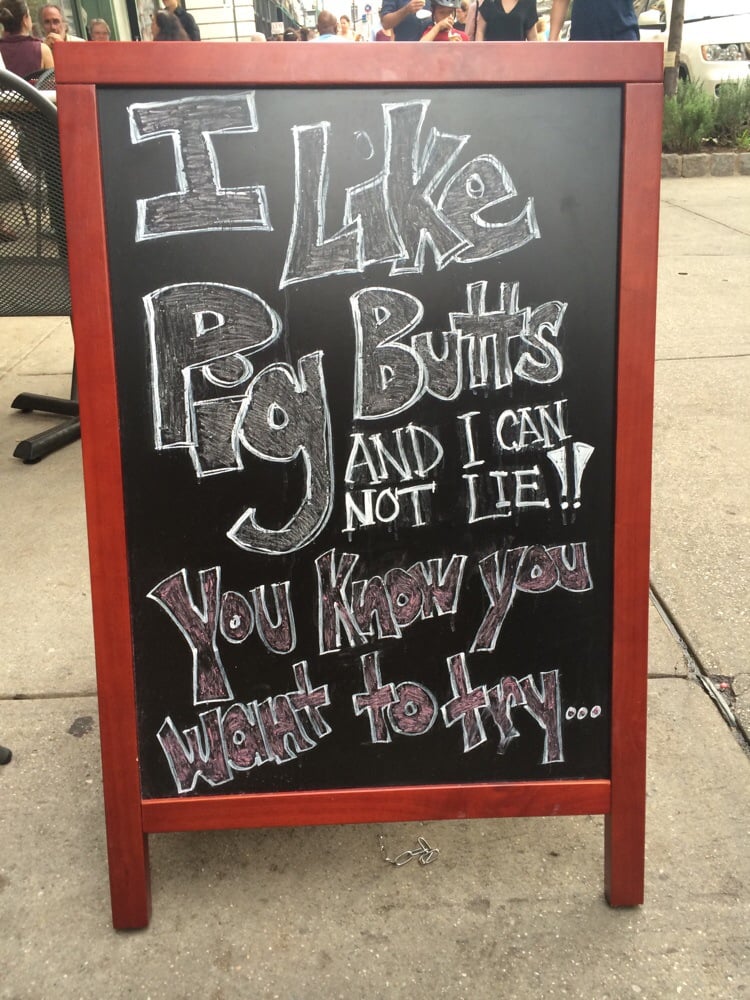 I Like
Pig Butts
AND I CAN
NOT LIE!!
You Know you
want to try...